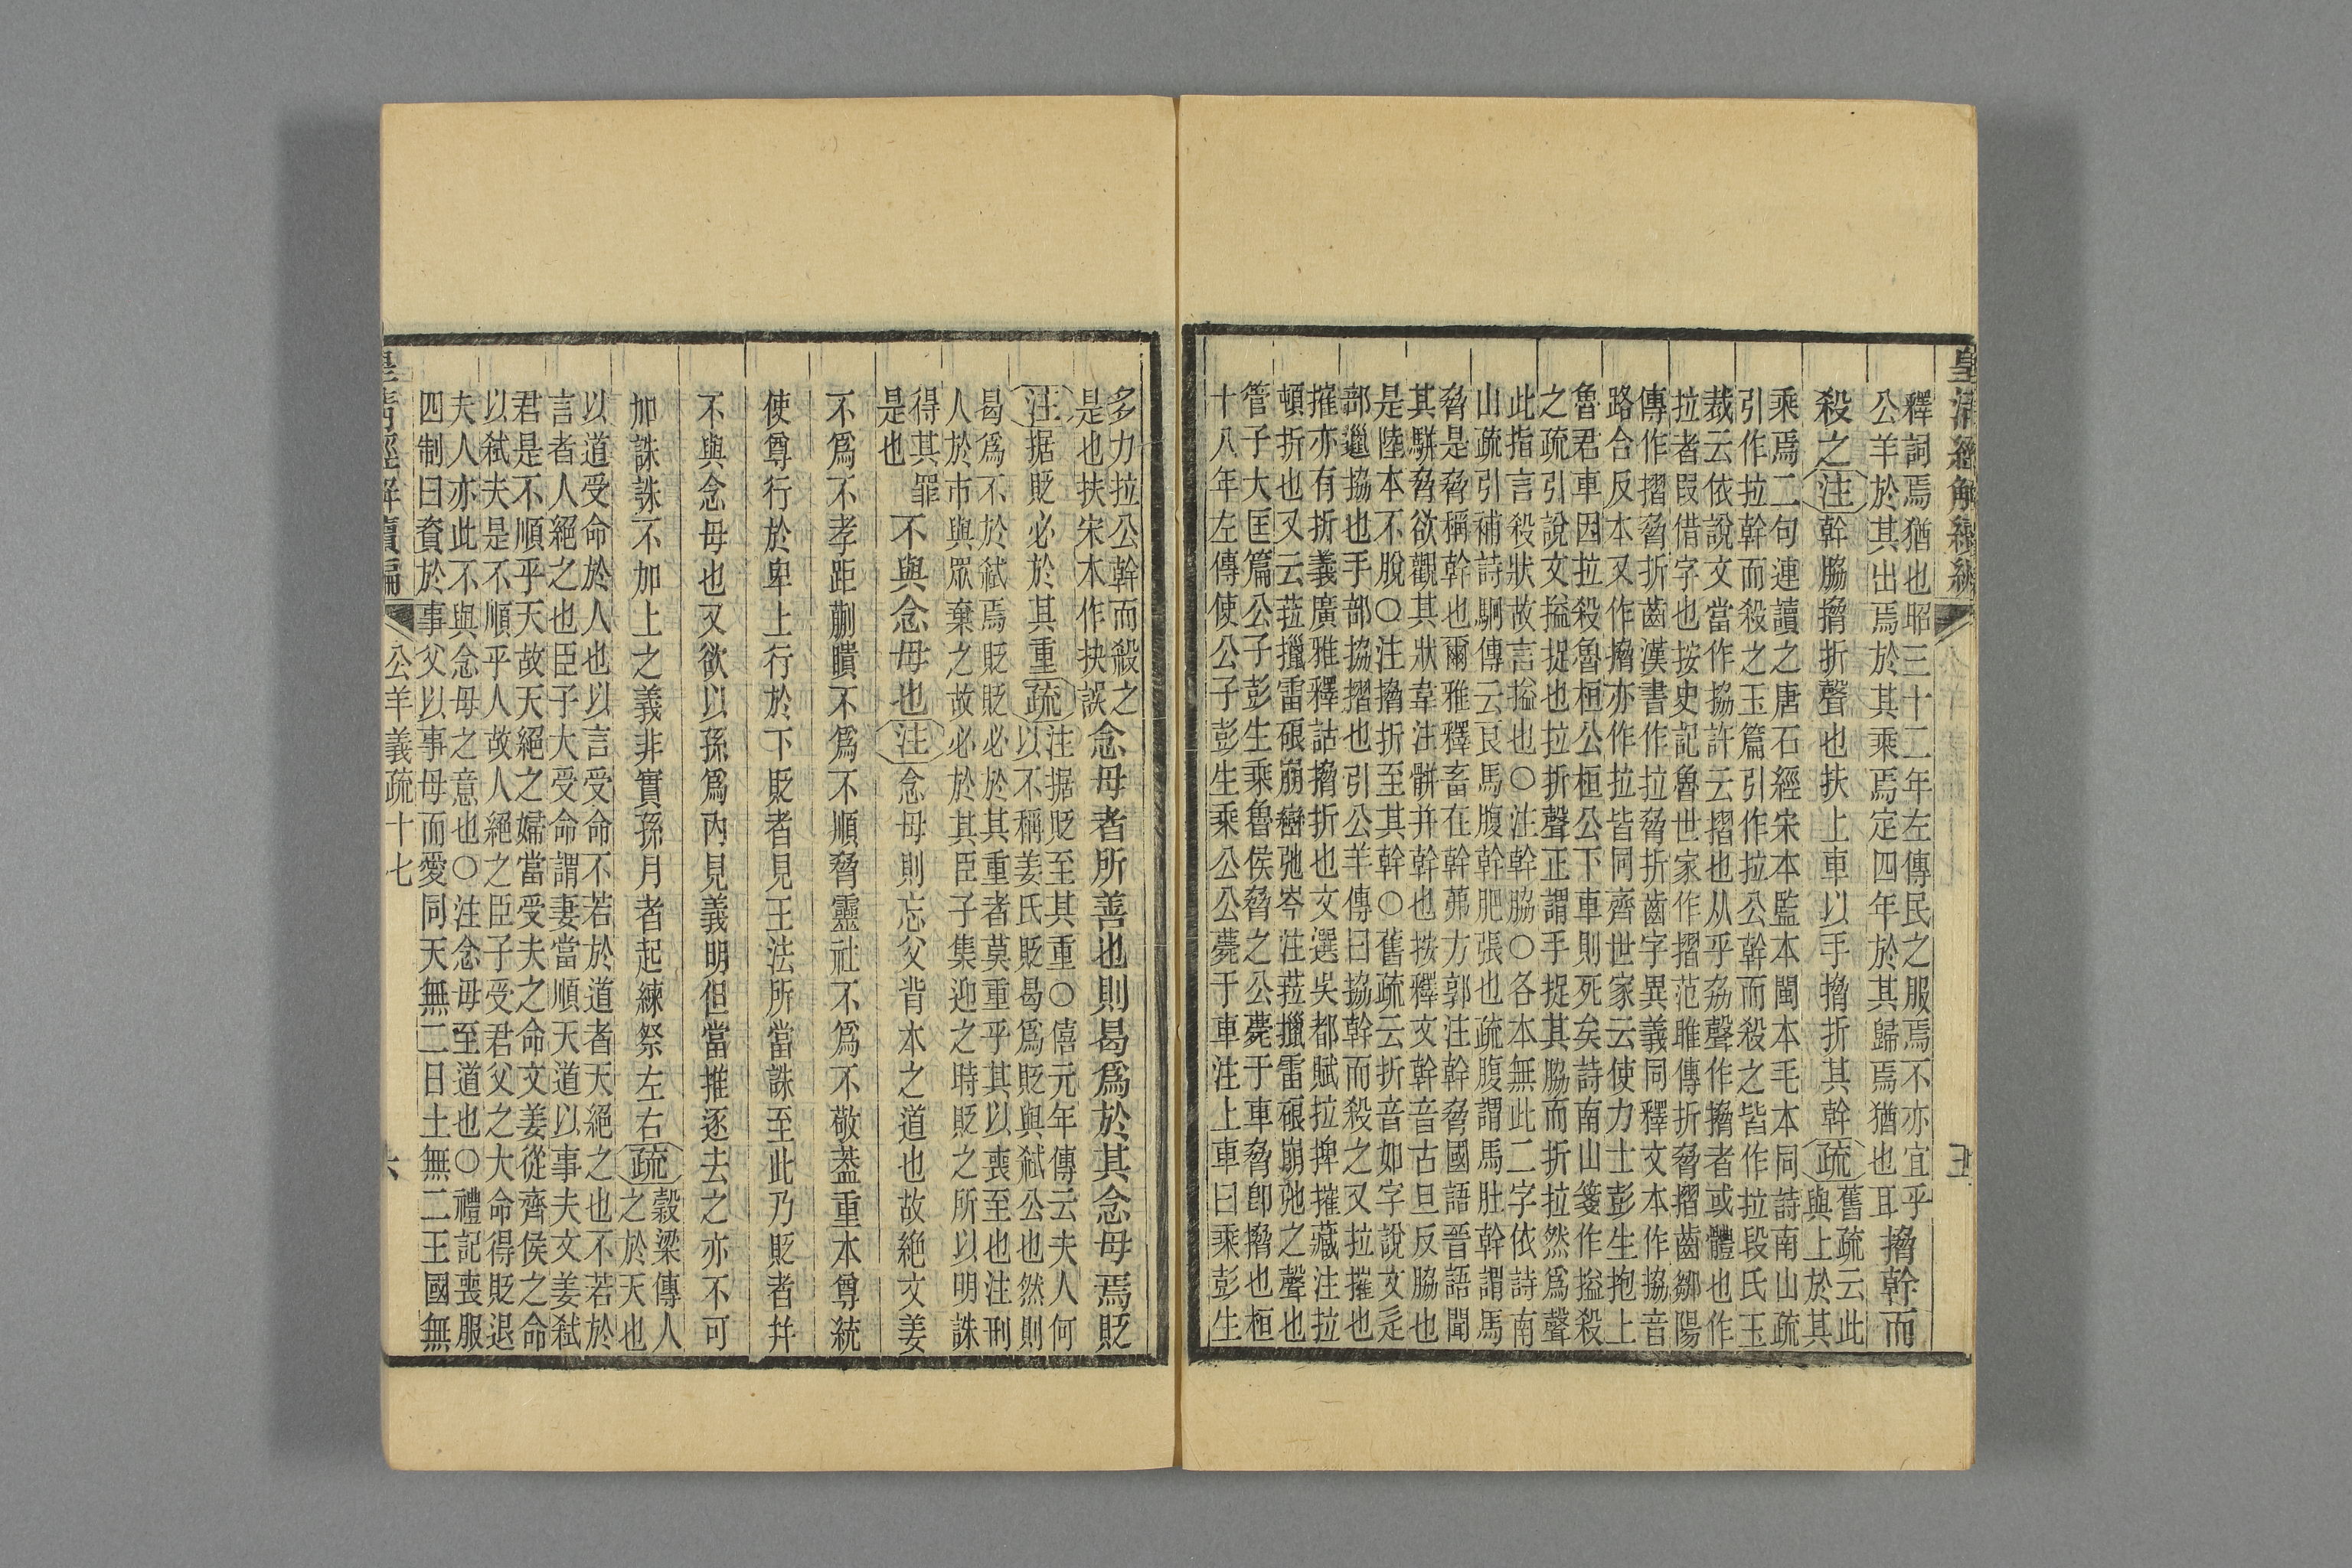 皇清經解續編
釋詞焉猶也昭三十二年左傳民之服焉不亦宜乎
公羊於其出焉於其乘焉定四年於其歸焉猶也耳
搚幹而
殺之
注
幹脇搚折聲也扶上車以手搚折其幹
疏
舊疏云此
與上於其
乘焉二句連讀之唐石經宋本監本閩本毛本同詩南山疏
引作拉幹而殺之玉篇引作拉公幹而殺之皆作拉段氏玉
裁云依說文當作協許云摺也从手劦聲作搚者或體也作
拉者叚借字也按史記魯世家作摺范雎傳折脅摺齒鄒陽
傳作摺脅折齒漢書作拉脅折齒字異義同釋文本作協音
路合反本又作搚亦作拉皆同齊世家云使力士彭生抱上
魯君車因拉殺魯桓公桓公下車則死矣詩南山箋作搤殺
之疏引說文搤捉也拉折聲正謂手捉其脇而折拉然為聲
此指言殺狀故言搤也○注幹脇○各本無此二字依詩南
山疏引補詩駉傳云艮馬腹幹肥張也疏腹謂馬肚幹謂馬
脅是脅稱幹也爾雅釋畜在幹茀方郭注幹脅國語晉語聞
其駢脅欲觀其狀韋注骿并幹也按釋文幹音古旦反脇也
是陸本不脫○注搚折至其幹○舊疏云折音如字說文辵
部邋協也手部協摺也引公羊傳曰協幹而殺之又拉摧也
摧亦有折義廣雅釋詁搚折也文選吳都賦拉捭摧藏注拉
頓折也又云菈擸雷硠崩巒弛岑注菈擸雷硠崩弛之聲也
管子大匡篇公子彭生乘魯侯脅之公薨于車脅卽搚也桓
十八年左傳使公子彭生乘公公薨于車注上車曰乘彭生
多力拉公幹而殺之
是也扶宋本作抉誤
念母者所善也則曷爲於其念母焉貶
注
据貶必於其重
疏
注据貶至其重○僖元年傳云夫人何
以不稱姜氏貶曷爲貶與弒公也然則
曷爲不於弒焉貶貶必於其重者莫重乎其以喪至也注刑
人於市與眾棄之故必於其臣子集迎之時貶之所以明誅
得其罪
是也
不與念母也
注
念母則忘父背本之道也故絕文姜
不爲不孝距蒯聵不爲不順脅靈社不爲不敬葢重本尊統
使尊行於卑上行於下貶者見王法所當誅至此乃貶者幷
不與念母也又欲以孫爲內見義明但當推逐去之亦不可
加誅誅不加上之義非實孫月者起練祭左右
疏
穀梁傳人
之於天也
以道受命於人也以言受命不若於道者天絕之也不若於
言者人絕之也臣子大受命謂妻當順天道以事夫文姜弒
君是不順乎天故天絕之婦當受夫之命文姜從齊侯之命
以弒夫是不順乎人故人絕之臣子受君父之大命得貶退
夫人亦此不與念母之意也○注念母至道也○禮記喪服
四制曰資於事父以事母而愛同天無二日土無二王國無
皇清經解續編
公羊義疏十七